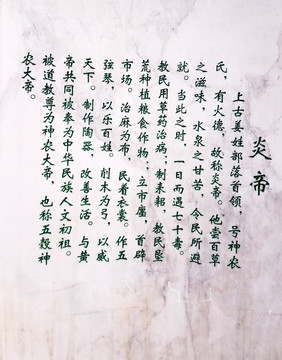 炎帝
上古姜姓部落首领，号神农
氏，有火德，故称炎帝。他尝百草
之滋味，水泉之甘苦，令民所避
就。当此之时，一日而遇七十毒。
教民用草药治病；制耒耜，教民垦
荒种植粮食作物；立市廛，首辟
市场。治麻为布，民着衣裳。作五
弦琴，以乐百姓。削木为弓，以威
天下。制作陶器，改善生活。与黄
帝共同被奉为中华民族人文初祖。
被道教尊为神农大帝，也称五穀神
农大帝。